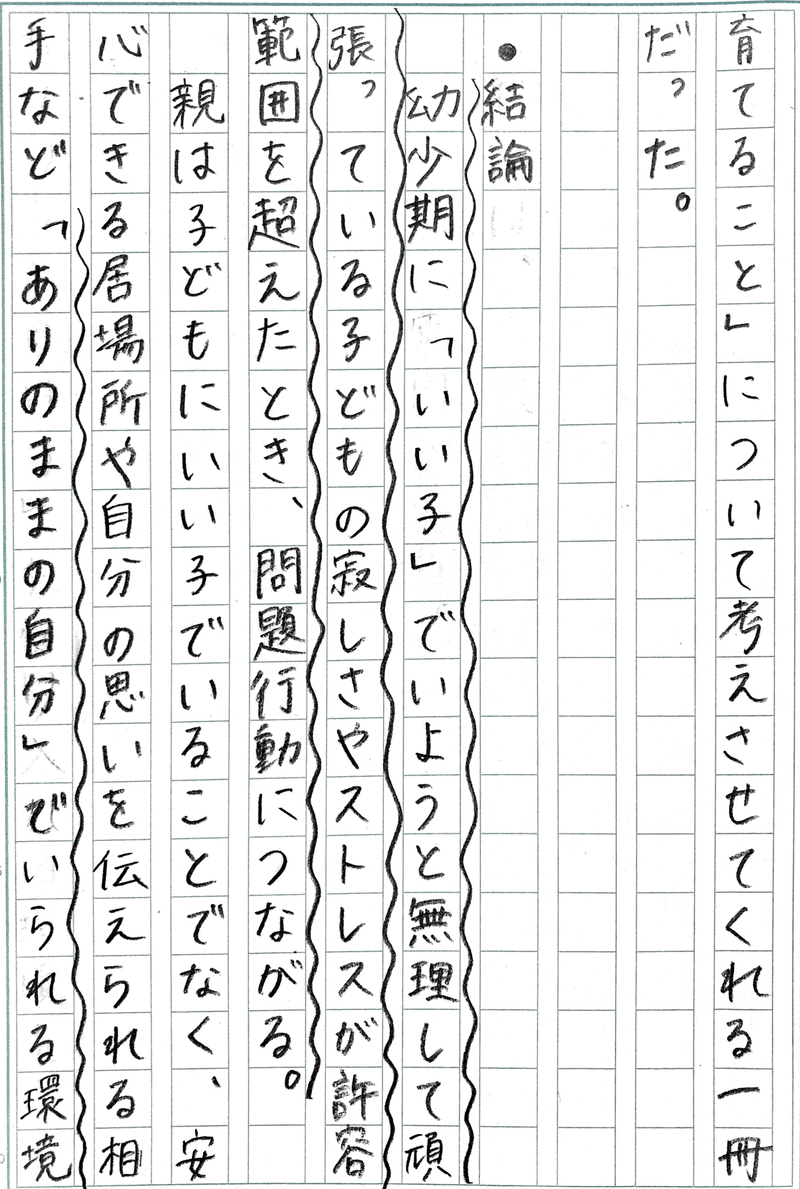 育てること」について考えさせてくれる一冊
だった。
●結論
幼少期に「いい子」でいようと無理して頑
張っている子どもの寂しさやストレスが許容
範囲を超えたとき、問題行動につながる。
親は子どもにいい子でいることでなく、安
心できる居場所や自分の思いを伝えられる相
手など「ありのままの自分」でいられる環境